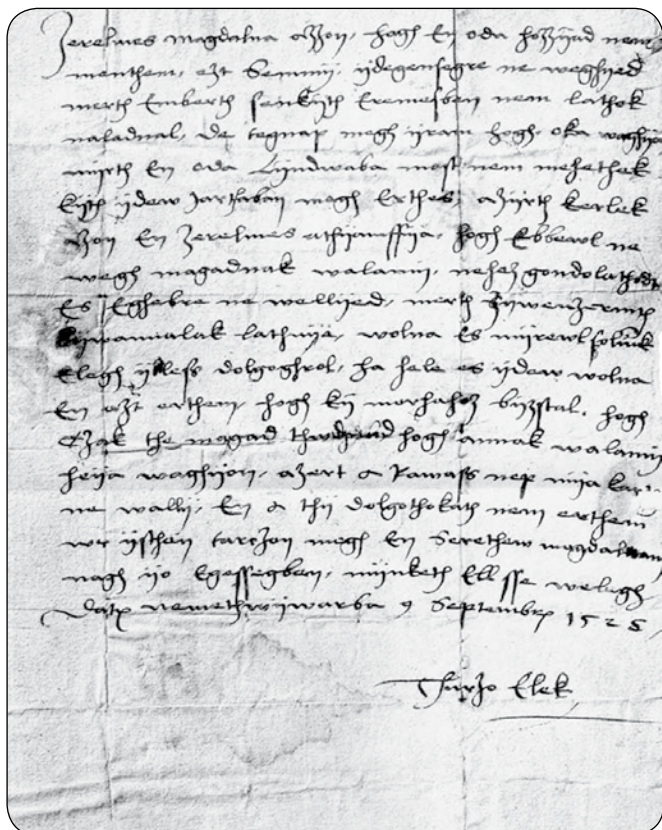 Zerelmes magdalna azzon, hogh En oda hozzijad nem
menthem, ezt Semmij, ijdegensegre ne weghijed
merth Emberth senkijth Eremesben nem lathok
naladnal, De tegnap megh ijram hogh, oka waghijon
mijrth En oda Lijndwaba most nem mehethek
kijth ijdew Jartaban megh Erthes, azijrth kerlek
azon En Zerelmes athijamffija, hogh Ebbewl ne
wegh magadnak walamij, nehez gondolathodt
Es Eghebre ne wellijed, merth zijwenzerinth
kijwannalak lathnija, wolna Es mijrewl solnuk
Elegh dolgoghrol, ha hele es ijdew wolna
En azt erthem, hogh kij morhahoz bijztal, hogh
Czak the magad thwdnad hogh annak walamij
heija waghijon, azert a kamass nep mija kar
ne wallij, En a thij dolgothokath nem erthem
wr ijsthen tarczon megh En Serethew magdalnam
nagh ijo Egessegben, mijnketh Ell sse welegh
Datum nemethwijwarba 9 Septembris 1528
Thurzo Elek